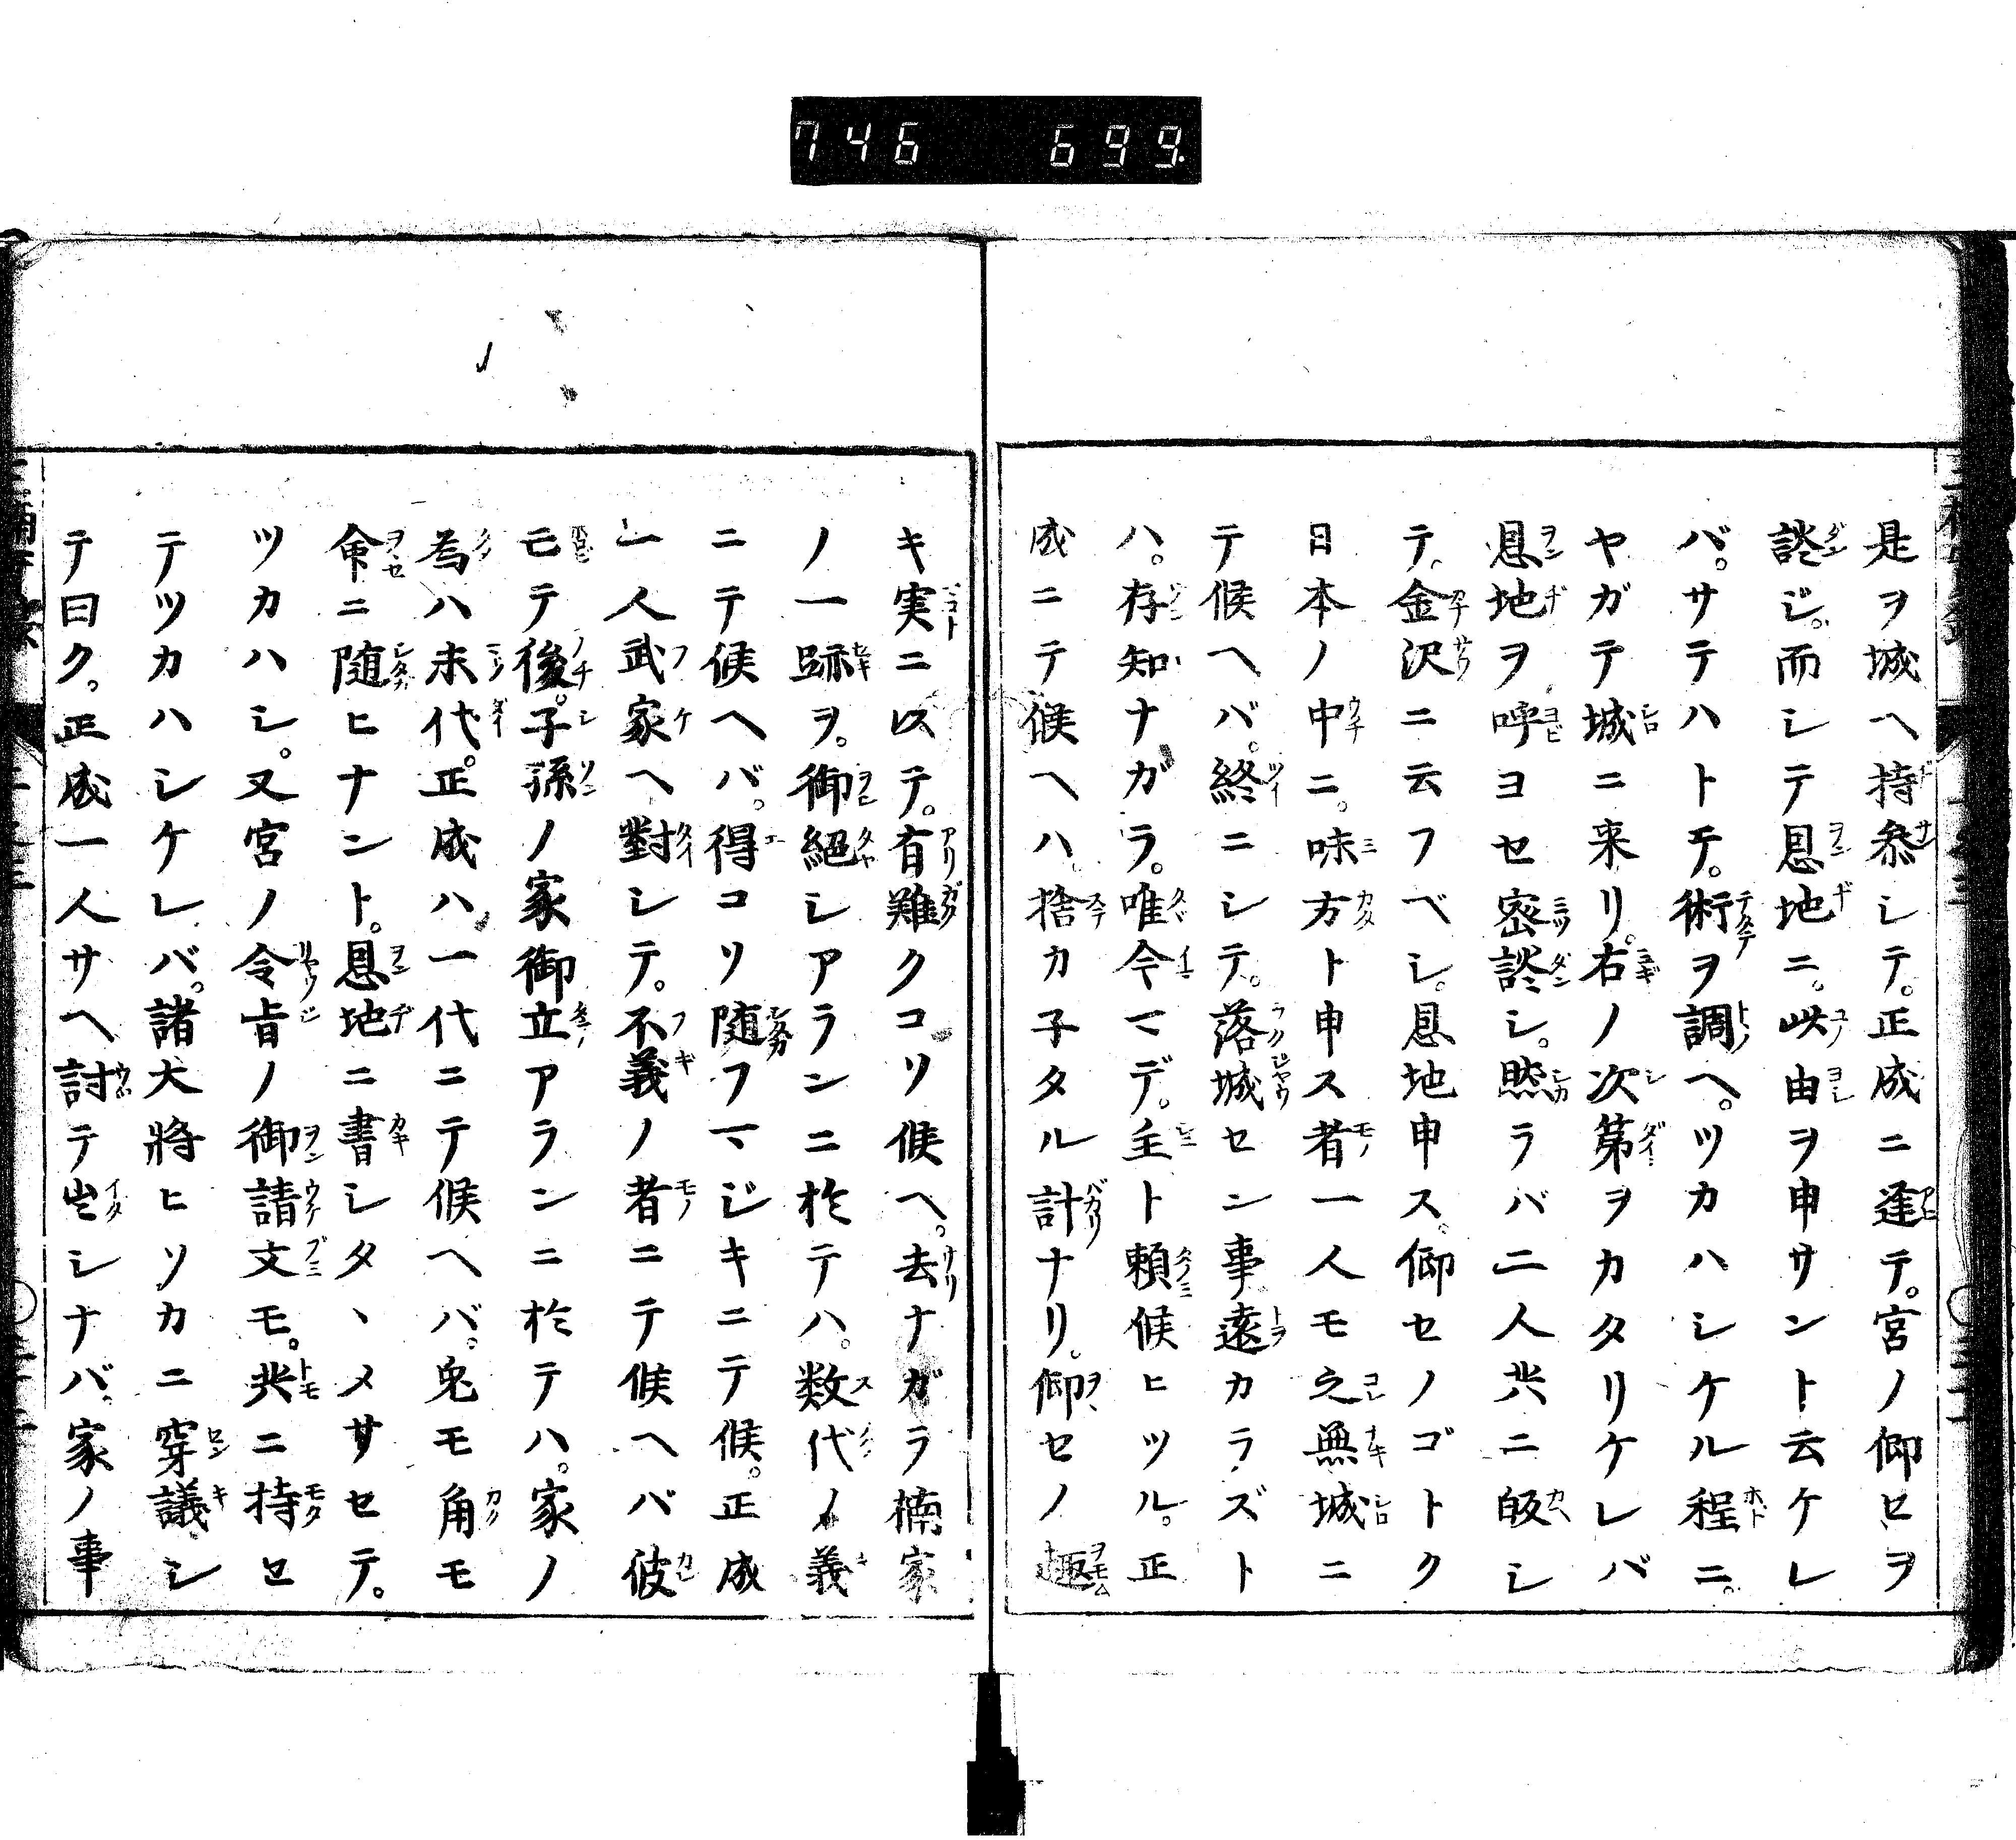 746 699.
是ヲ城ヘ持参シテ。正成ニ逢テ。宮ノ仰セヲ
談ジ。而シテ恩地ニ。此由ヲ申サント云ケレ
バ。サテハトテ。術ヲ調ヘ。ツカハシケル程ニ。
ヤガテ城ニ来リ。右ノ次第ヲカタリケレバ
恩地ヲ呼ヨセ密談シ。然ラバ二人共ニ皈シ
テ。金沢ニ云フベシ。恩地申ス。仰セノゴトク
日本ノ中ニ。味方ト申ス者一人モ之無城ニ
テ候ヘバ。終ニシテ。落城セン事遠カラズト
ハ。存知ナガラ。唯今マデ。主ト頼候ヒツル。正
成ニテ候ヘハ。捨カ子タル計ナリ。仰セノ趣
キ実ニ以テ。有難クコソ候ヘ。去ナガラ楠家
ノ一跡ヲ。御絕シアランニ於テハ。数代ノ義
ニテ候ヘバ。得コソ随フマジキニテ候。正成
一人武家ヘ對シテ。不義ノ者ニテ候ヘバ彼
モテ後。子孫ノ家御立アランニ於テハ。家ノ
為ハ末代。正成ハ。一代ニテ候ヘバ。兎モ角モ
命ニ随ヒナント。恩地ニ書シタヽメサセテ。
ツカハシ。又宮ノ令旨ノ御請文モ。共ニ持セ
テツカハシケレバ。諸大將ヒソカニ穿議シ
テ曰ク。正成一人サヘ討テ出シナバ。家ノ事